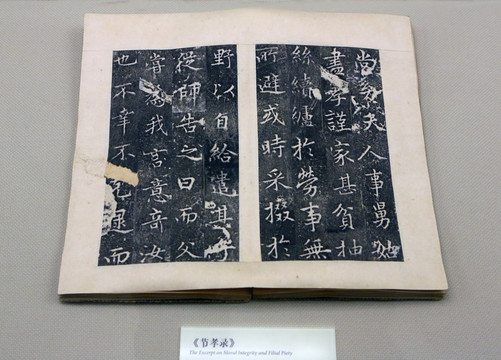 尚夫人事舅姑
盡孝謹家甚貧抽
絲績纑於勞事無
所避或時采掇於
野以自給遣其子
從師告之曰而父
嘗爲我言意奇汝
也不幸不逮而
《节孝录》
The Excerpt on Moral Integrity and Filial Piety